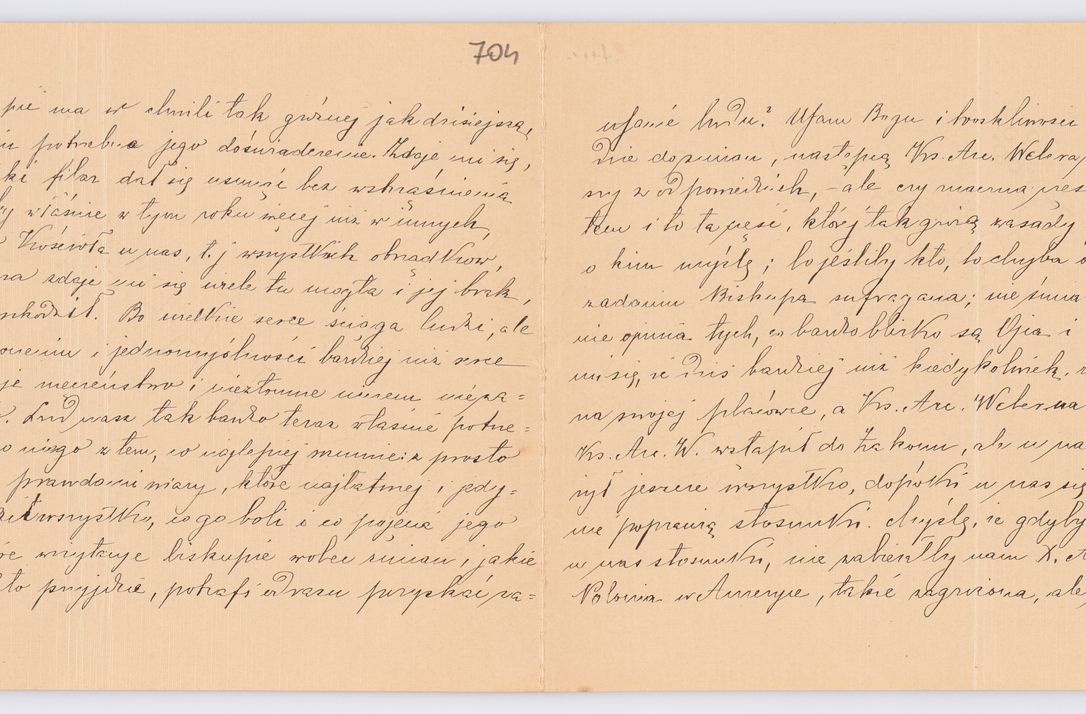 704
pić ma w chwili tak groźnej jak dzisiejsza,
potrzebna jego doświadczenie. Zdaje mi się,
ki filar dał się usunąć bez wstrząśnienia
właśnie w tym roku więcej niż w innych,
Kościoła u nas, t.j wszystkich obrządków,
na zdaje mi się wiele tu mogła i jej brak,
Bo wielkie serce ściąga ludzi, ale
i jednomyślności bardziej niż serce
je męczeństwo i niezłomne
Lud nasz tak bardzo teraz właśnie potrze=
niego z tem, co najlepiej umie: z prosto
prawdami wiary, które najłatwiej i jedy=
wszystko, co go boli i co pojenia jego
biskupie wobec zmian, jakie
to przyjdzie, potrafi od razu pozyskać za=
ufanie ludu? Ufam Bogu i troskliwości
dzie do zmian, nastąpią Ks. Arc. Webera
sny z odpowiednich, – ale czy można
tem i to ta część, której tak grożą zasady
o kim myślę; bo jeśliby kto, to chyba
zadaniu Biskupa sufragana; nie śmia
nie opinia tych, co bardzo blisko są Ojca i
mi się, że dziś bardziej niż kiedykolwiek,
na swojej placówce, a Ks. Arc. Weber na
Ks. Arc. W. wstąpił do Zakonu, ale u na
jeszcze wszystko, dopóki u nas się
nie poprawią stosunki. Myślę, że gdyby
u nas stosunki, nie zabierałby nam X. A
Polonia w Ameryce, także zagrożona, ale